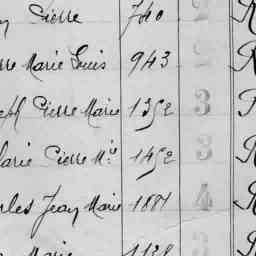 Pierre 740 2 R
Marie Louis 943 2 R
Pierre Marie 1352 3
Marie Pierre Mie 1452 3 R
Charles Jean Marie 1881 4 R
Marie 1138 3